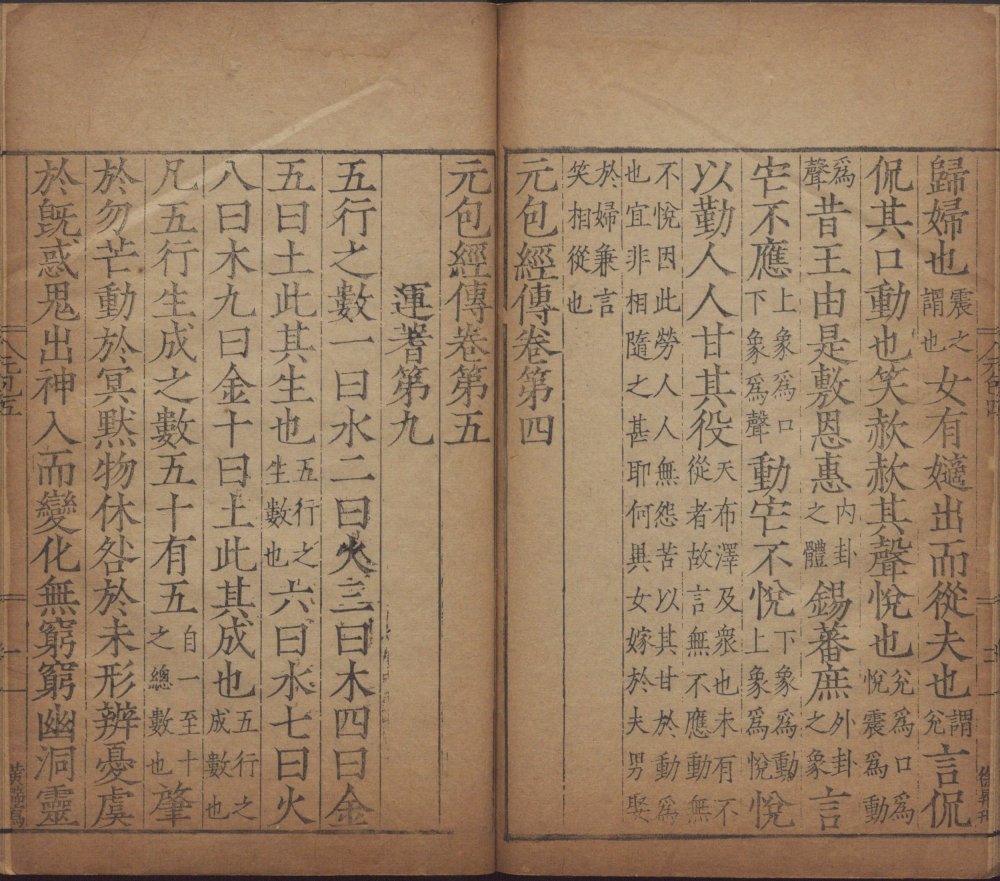 歸婦也震之謂也女有出而從夫也謂兌言侃
侃其口動也笑赥赥其聲悅也兌爲口爲悅震爲動
爲聲昔王由是敷恩惠內卦之體錫蕃庶外卦之象言
不應上象爲口下象爲聲動不悅下象爲動上象爲悅悅
以勤人人甘其役天布澤及衆也未有不從者故言無不應動無
不悅因此勞人人無怨苦以其甘於動爲
也宜非相隨之甚耶何異女嫁於夫男娶
於婦兼言
笑相從也
元包經傳卷第四
元包經傳卷第五
運蓍第九
五行之數一曰水二曰火三曰木四曰金
五曰土此其生也五行之生數也六曰水七曰火
八曰木九曰金十曰土此其成也五行之成數也
凡五行生成之數五十有五自一至十之總數也肇
於勿芒動於冥默物休咎於未形辨憂虞
於旣惑鬼出神入而變化無窮窮幽洞靈